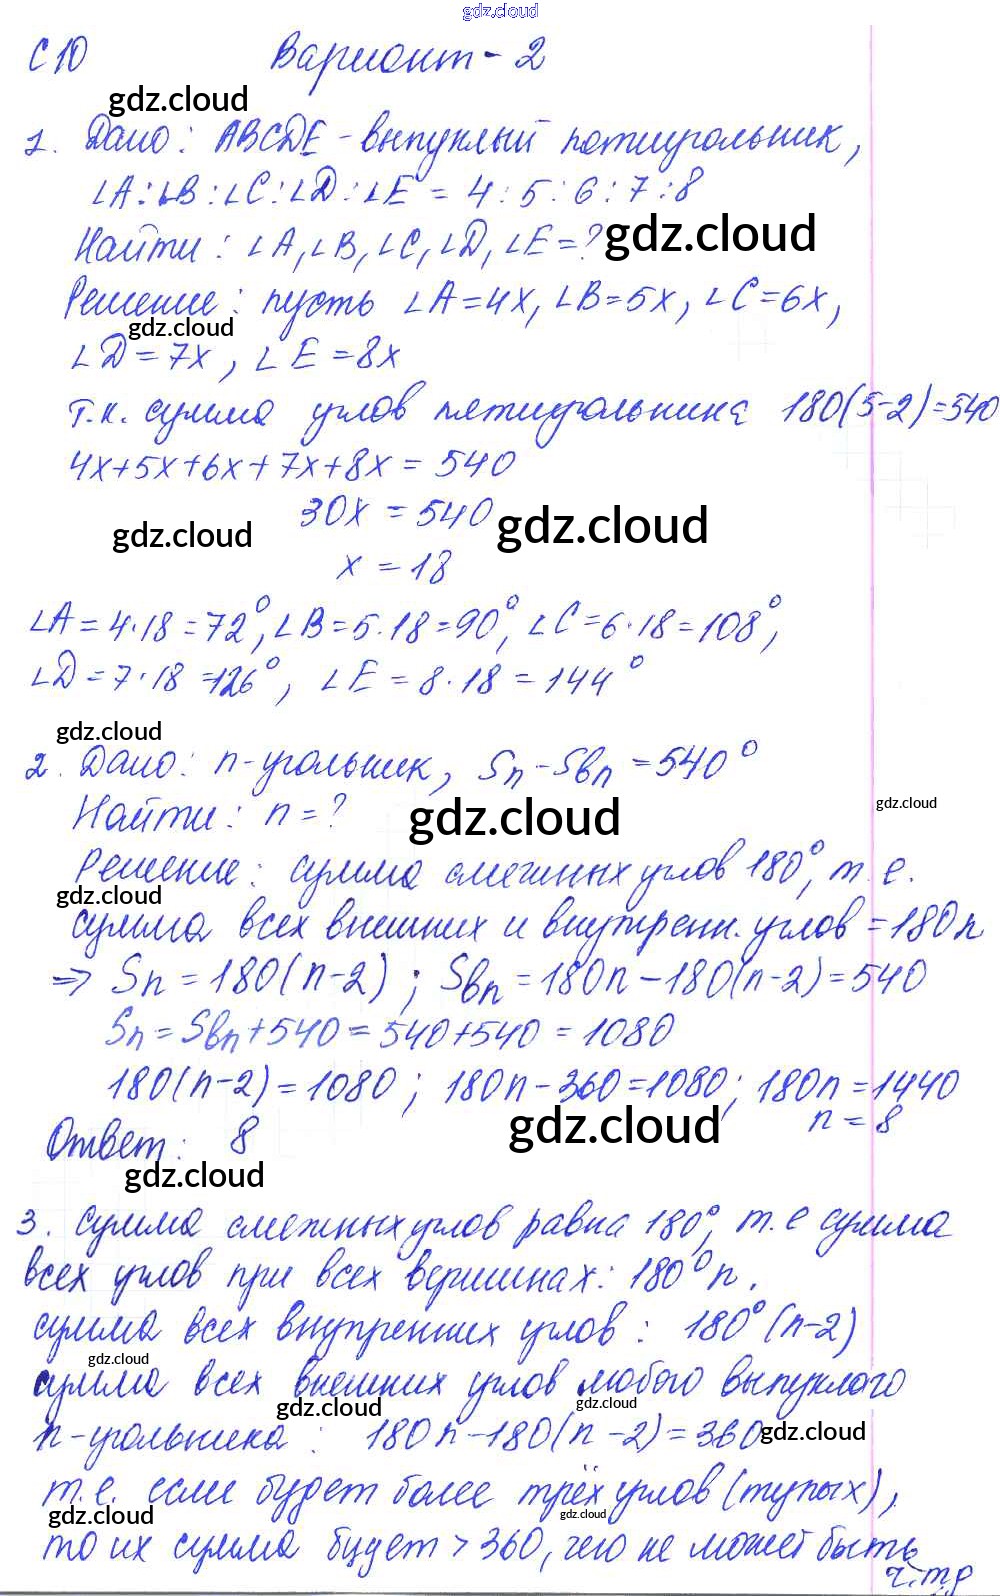 gdz.cloud
С 10 Вариант - 2
gdz.cloud
1. Дано: ABCDE - выпуклый пятиугольник,
∠A:∠B:∠C:∠D:∠E = 4:5:6:7:8
Найти: ∠A,∠B,∠C,∠D,∠E=? gdz.cloud
Решение: пусть ∠A=4x, ∠B=5x, ∠C=6x,
gdz.cloud
∠D=7x, ∠E=8x
т.к. сумма углов пятиугольника 180(5-2)=540
4x+5x+6x+7x+8x=540
30x = 540 gdz.cloud
gdz.cloud
x = 18
∠A=4·18=72°, ∠B=5·18=90°, ∠C=6·18=108°,
∠D=7·18=126°, ∠E=8·18=144°
gdz.cloud
2. Дано: n-угольник, Sn-Sвn=540°
gdz.cloud
Найти: n=? gdz.cloud
Решение: сумма смежных углов 180°, т.е.
gdz.cloud
сумма всех внешних и внутренн. углов =180n
⇒ Sn=180(n-2); Sвn=180n-180(n-2)=540
Sn=Sвn+540=540+540=1080
180(n-2)=1080; 180n-360=1080; 180n=1440
gdz.cloud n=8
Ответ: 8
gdz.cloud
3. Сумма смежных углов равна 180°, т.е сумма
всех углов при всех вершинах: 180°n.
сумма всех внутренних углов: 180°(n-2)
gdz.cloud
сумма всех внешних углов любого выпуклого
gdz.cloud gdz.cloud
n-угольника: 180n-180(n-2)=360 gdz.cloud
т.е. если будет более трёх углов (тупых),
gdz.cloud gdz.cloud
то их сумма будет >360, чего не может быть
ч.т.р